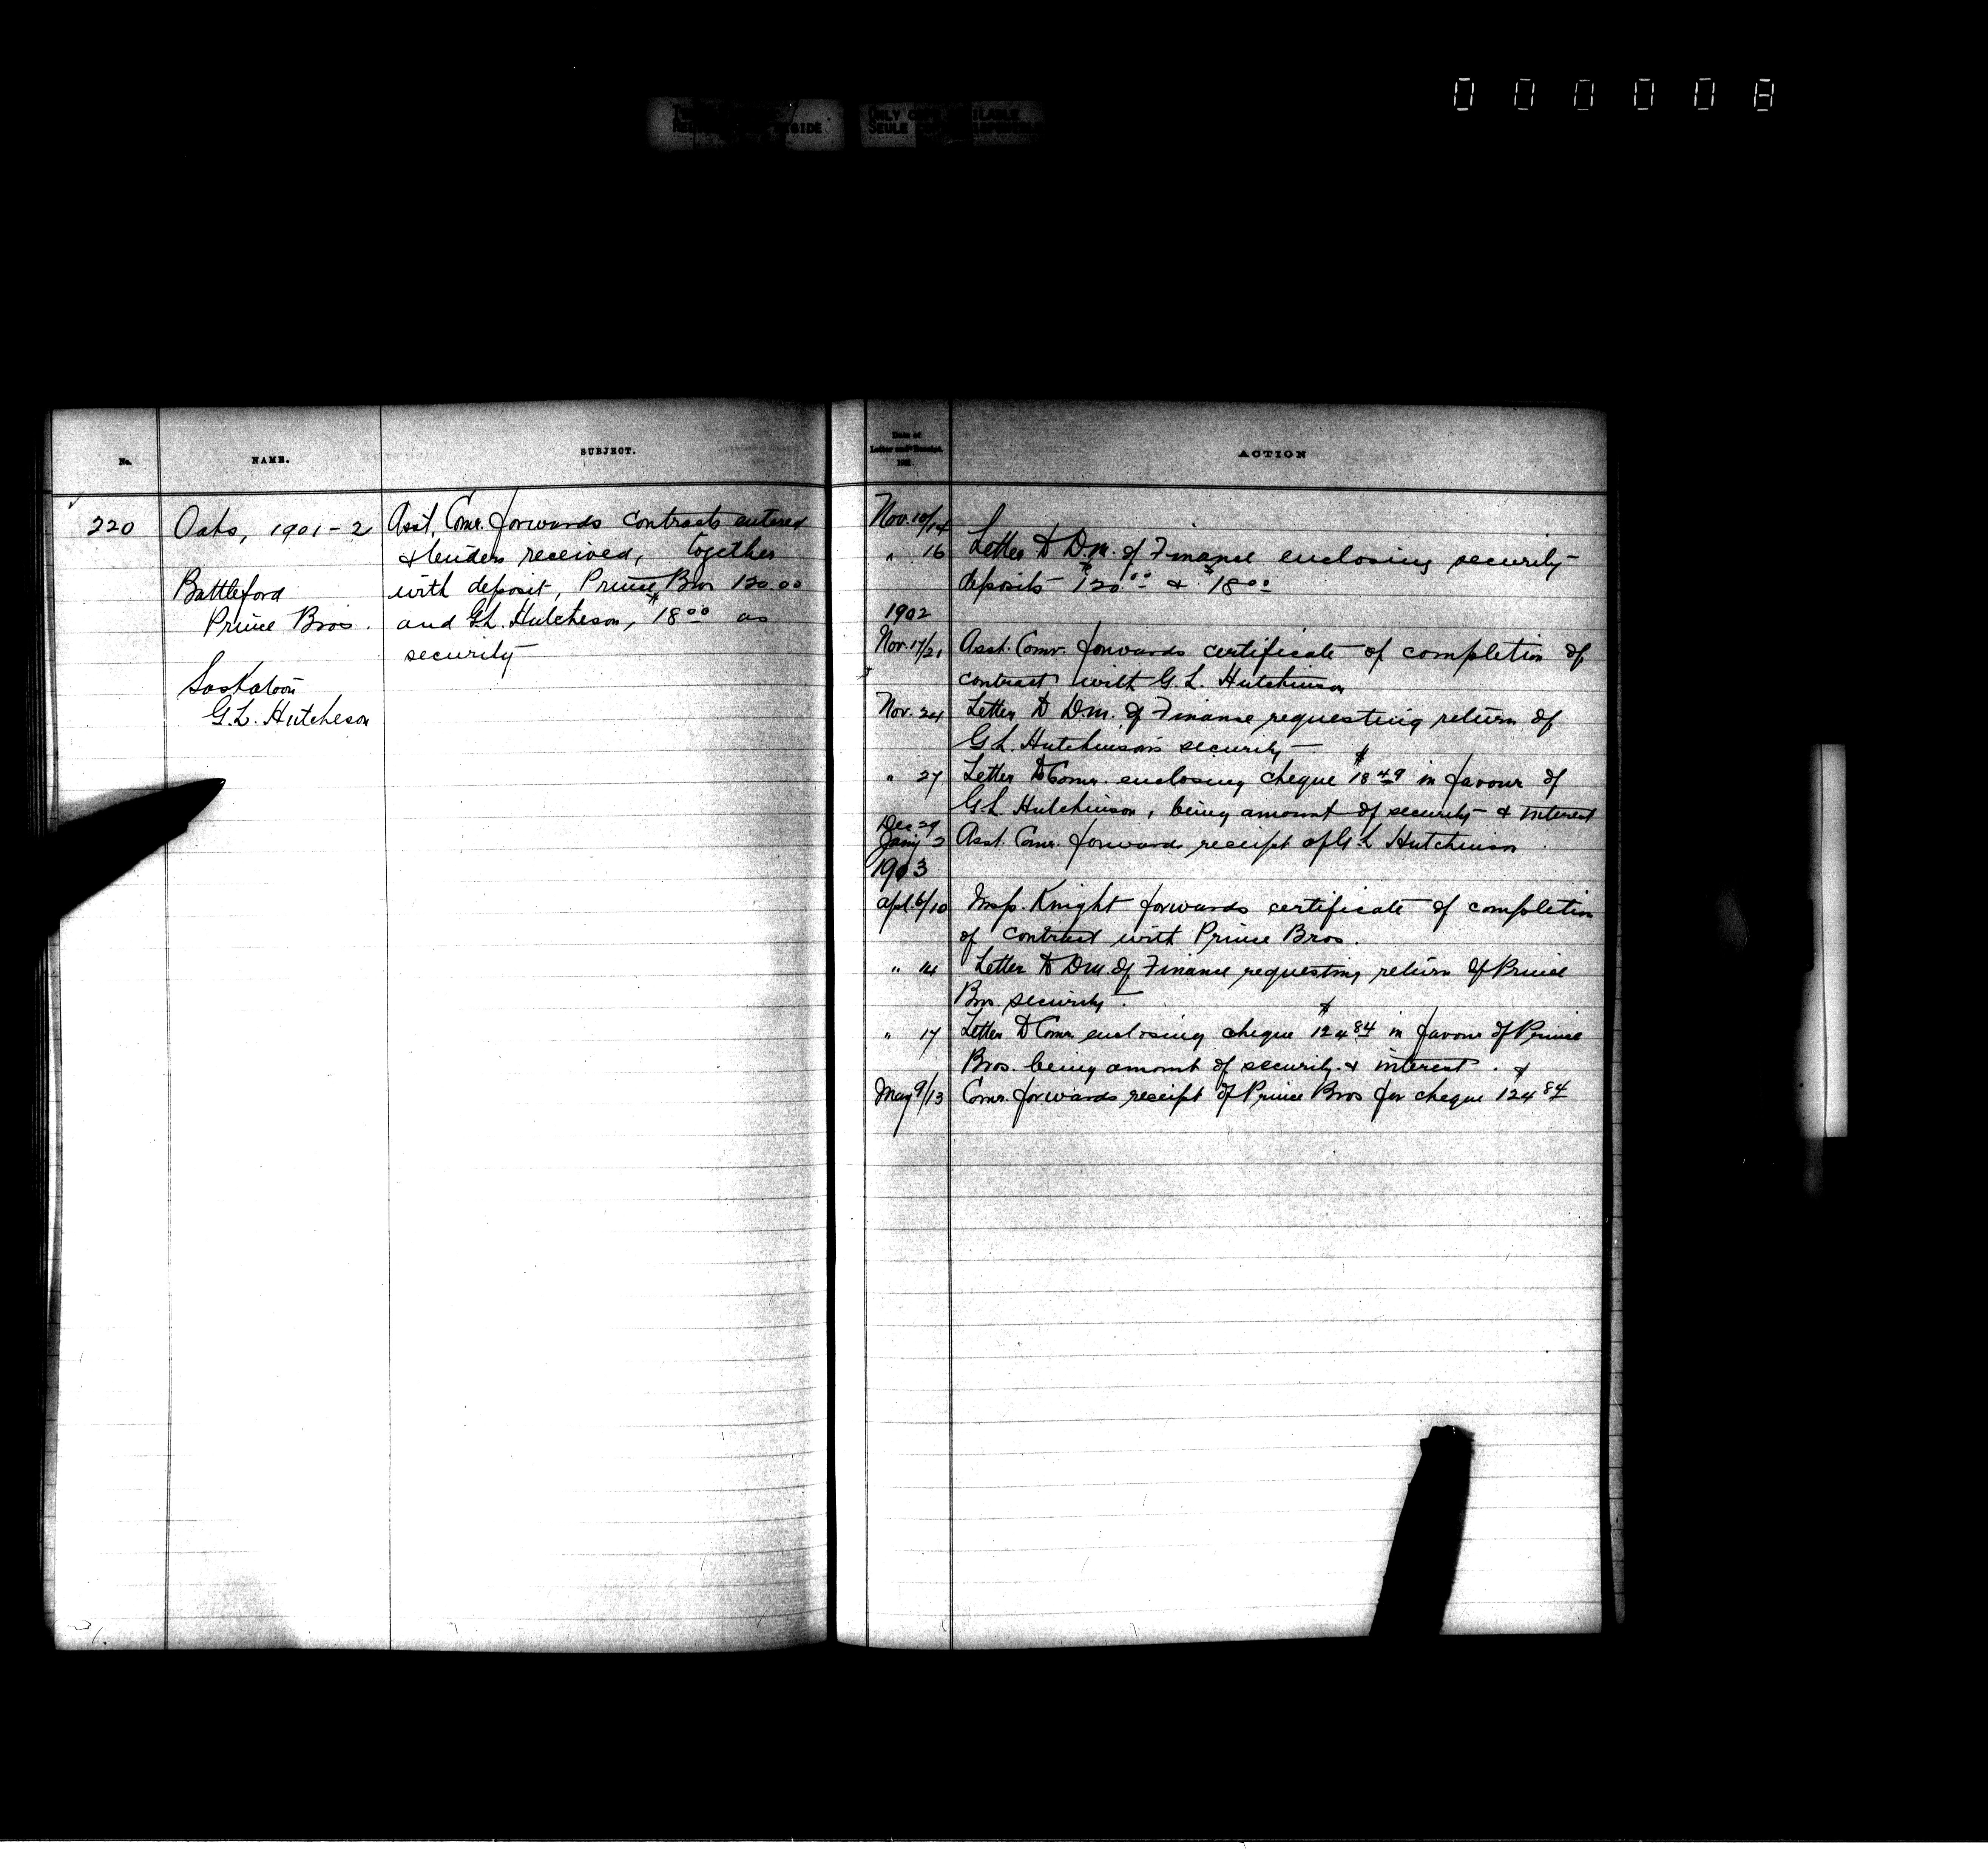 000008
ONLY COPY AVAILABLE
SEULE
No.
NAME.
SUBJECT.
220
Oats, 1901-2
Battleford
Prince Bros.
Saskatoon
G.L. Hutcheson
Asst. Comr. forwards contracts entered
& tenders received, together
with deposit, Prince Bros 120.00
and G.L. Hutcheson, $18.00 as
security
Date of
Letter and Receipt.
ACTION
Nov. 10/14
" 16 Letter to D.M. of Finance enclosing security
deposits $120.00 & $18.00
1902
Nov. 17/21 Asst. Comr. forwards certificate of completion of
contract with G.L. Hutchinson
Nov. 24 Letter to D.M. of Finance requesting return of
G.L. Hutchinson's security
" 27 Letter to Comr. enclosing cheque $18.49 in favour of
G.L. Hutchinson, being amount of security & interest
Dec 29
Jany 2 Asst. Comr. forwards receipt of G.L. Hutchinson
1903
Apl. 6/10 Insp. Knight forwards certificate of completion
of contract with Prince Bros.
" 14 Letter to D.M. of Finance requesting return of Prince
Bros. security.
" 17 Letter to Comr. enclosing cheque $124.84 in favour of Prince
Bros. being amount of security & interest.
May 9/13 Comr. forwards receipt of Prince Bros for cheque $124.84